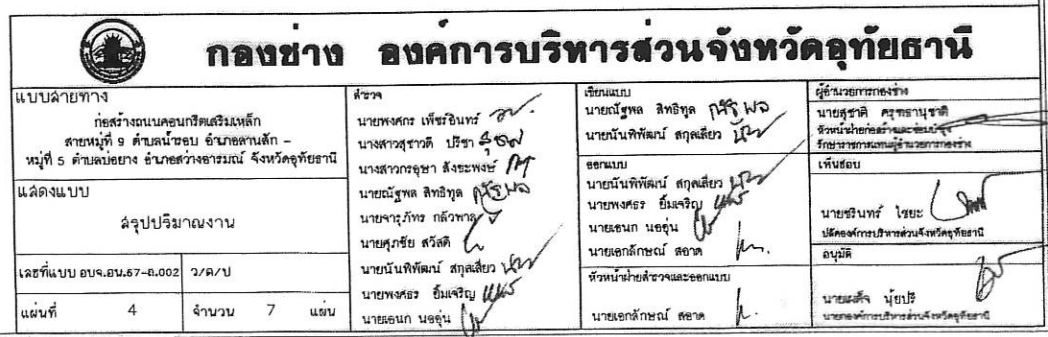 กองช่าง องค์การบริหารส่วนจังหวัดอุทัยธานี
แบบสายทาง
ก่อสร้างถนนคอนกรีตเสริมเหล็ก
สายหมู่ที่ 9 ตำบลน้ำรอบ อำเภอลานสัก -
หมู่ที่ 5 ตำบลบ่อยาง อำเภอสว่างอารมณ์ จังหวัดอุทัยธานี
แสดงแบบ
สรุปปริมาณงาน
เลขที่แบบ อบจ.อน.67-ถ.002 ว/ด/ป
แผ่นที่ 4 จำนวน 7 แผ่น
สำรวจ
นายพงศกร เพ็ชร์อินทร์
นางสาวสุชาวดี ปรีชา
นางสาวกรอุษา สังขะพงษ์
นายณัฐพล สิทธิทูล
นายจารุภัทร กลัวพาล
นายศุภชัย สวัสดี
นายนันพิพัฒน์ สกุลเสี่ยว
นายพงศธร ยิ้มเจริญ
นายเอนก นออุ่น
เขียนแบบ
นายณัฐพล สิทธิทูล
นายนันพิพัฒน์ สกุลเสี่ยว
ออกแบบ
นายนันพิพัฒน์ สกุลเสี่ยว
นายพงศธร ยิ้มเจริญ
นายเอนก นออุ่น
นายเอกลักษณ์ สอาด
หัวหน้าฝ่ายสำรวจและออกแบบ
นายเอกลักษณ์ สอาด
ผู้อำนวยการกองช่าง
นายสุชาติ ครุฑธานุชาติ
หัวหน้าฝ่ายก่อสร้างและซ่อมบำรุง
รักษาราชการแทนผู้อำนวยการกองช่าง
เห็นชอบ
นายชรินทร์ ไชยะ
ปลัดองค์การบริหารส่วนจังหวัดอุทัยธานี
อนุมัติ
นายเผด็จ นุ้ยปรี
นายกองค์การบริหารส่วนจังหวัดอุทัยธานี